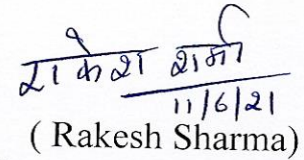 राकेश शर्मा
11/6/21
( Rakesh Sharma)